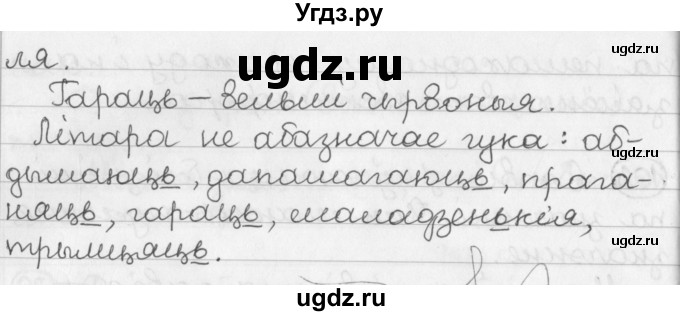 Угдз.ру
ugdz.ru
ugdz.ru
ugdz.ru
ля.
Гараць – вельмі чырвоныя.
Літара не абазначае гука: аб-
дымаюць, дапамагаюць, прага-
няць, гараць, маладзенькія,
трымцяць.
ugdz.ru
ugdz.ru
ugdz.ru